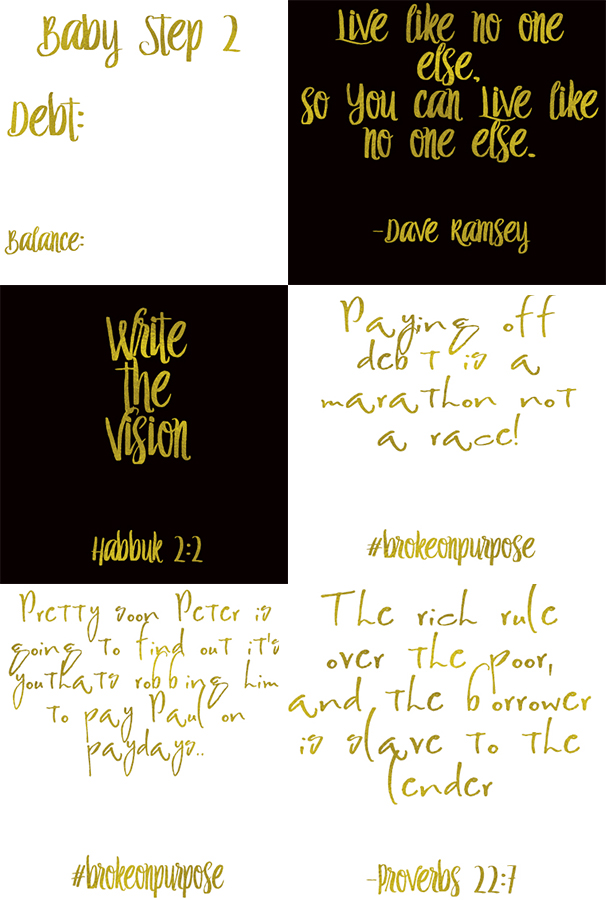 Baby Step 2
Debt:
Balance:
Live like no one
else,
so you can live like
no one else.
-Dave Ramsey
Write
the
Vision
Habbuk 2:2
Paying off
debt is a
marathon not
a race!
#brokeonpurpose
Pretty soon Peter is
going to find out it's
youthats robbing him
to pay Paul on
paydays..
#brokeonpurpose
The rich rule
over the poor,
and the borrower
is slave to the
lender
-Proverbs 22:7